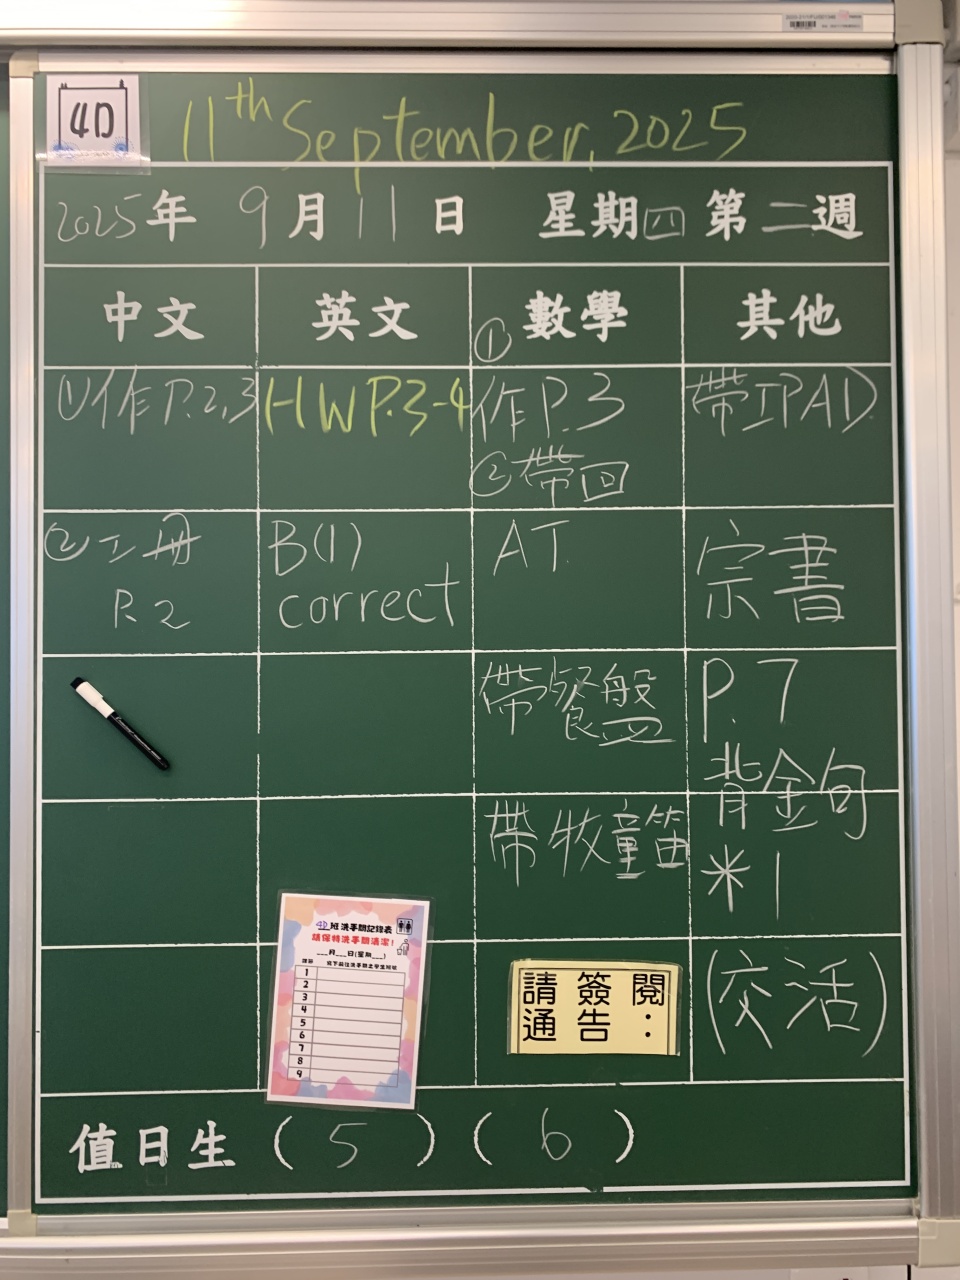 4D
11th September, 2025
2025年 9月11日 星期四 第二週
中文 英文 數學 其他
①作P.2,3
②工冊
P.2
HW P.3-4
B(1)
correct
①
作P.3
②帶回
AT
帶餐盤
帶牧童笛
帶IPAD
宗書
P.7
背金句
米1
(交活)
4D班洗手間記錄表
請保持洗手間清潔!
___月___日(星期___)
1
2
3
4
5
6
7
8
9
請簽閱
通告:
值日生 (5)(6)